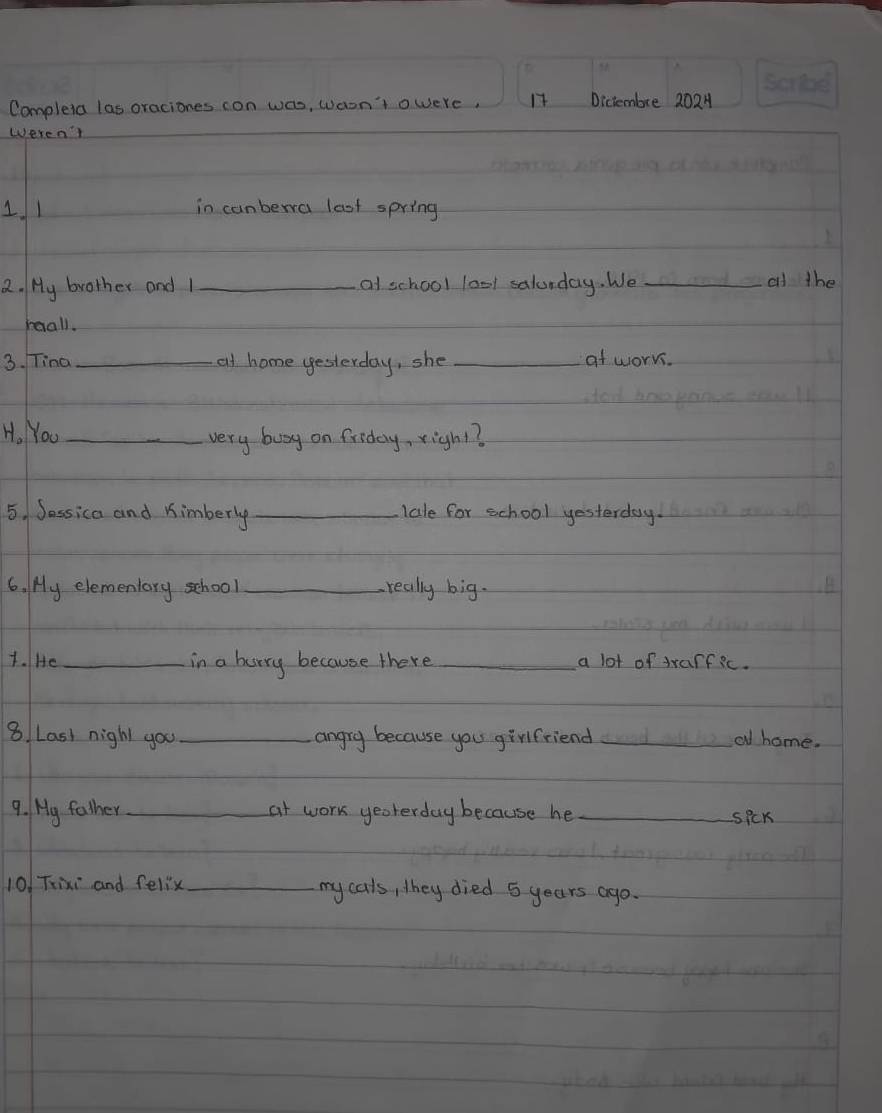 Scribe
Completa las oraciones con was, wasn't o were, 17 Diciembre 2024
weren't
1. I in canberra last spring
2. My brother and I ________ at school last saturday. We ________ at the
maall.
3. Tina ________ at home yesterday, she ________ at work.
4. You ________ very busy on friday, right?
5. Jessica and Kimberly ________ late for school yesterday.
6. My elementary school ________ really big.
7. He ________ in a hurry because there ________ a lot of traffic.
8. Last night you ________ angry because you girlfriend ________ at home.
9. My father ________ at work yesterday because he ________ sick
10. Trixi and felix ________ my cats, they died 5 years ago.